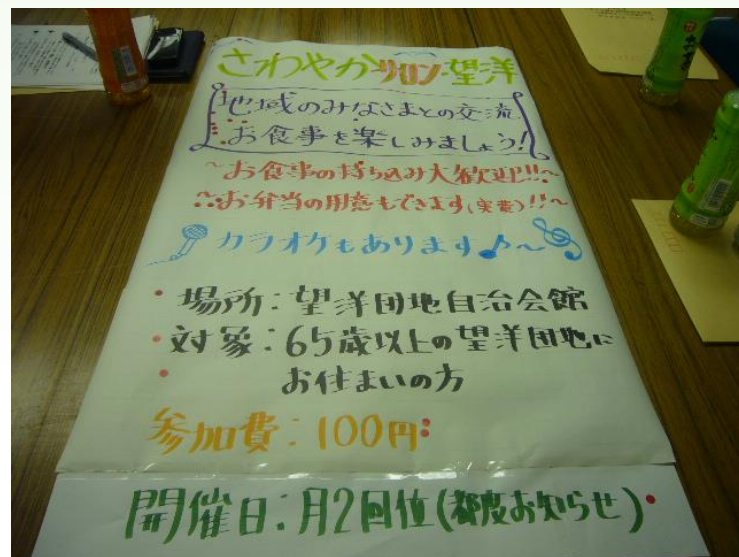 さわやかサロン望洋
地域のみなさまとの交流
お食事を楽しみましょう!
～お食事の持ち込み大歓迎!!～
～お弁当の用意もできます(実費)!!～
カラオケもあります♪～
・場所:望洋団地自治会館
・対象:65歳以上の望洋団地に
・お住まいの方
参加費:100円
開催日:月2回位(都度お知らせ)